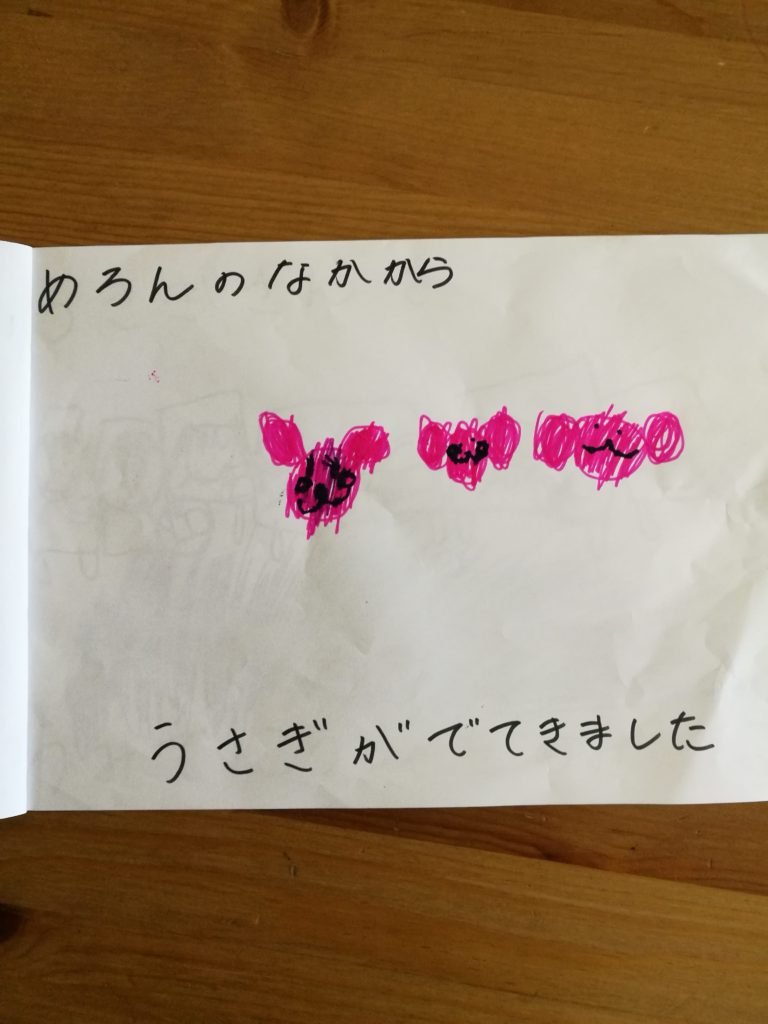 めろんのなかから
うさぎがでてきました